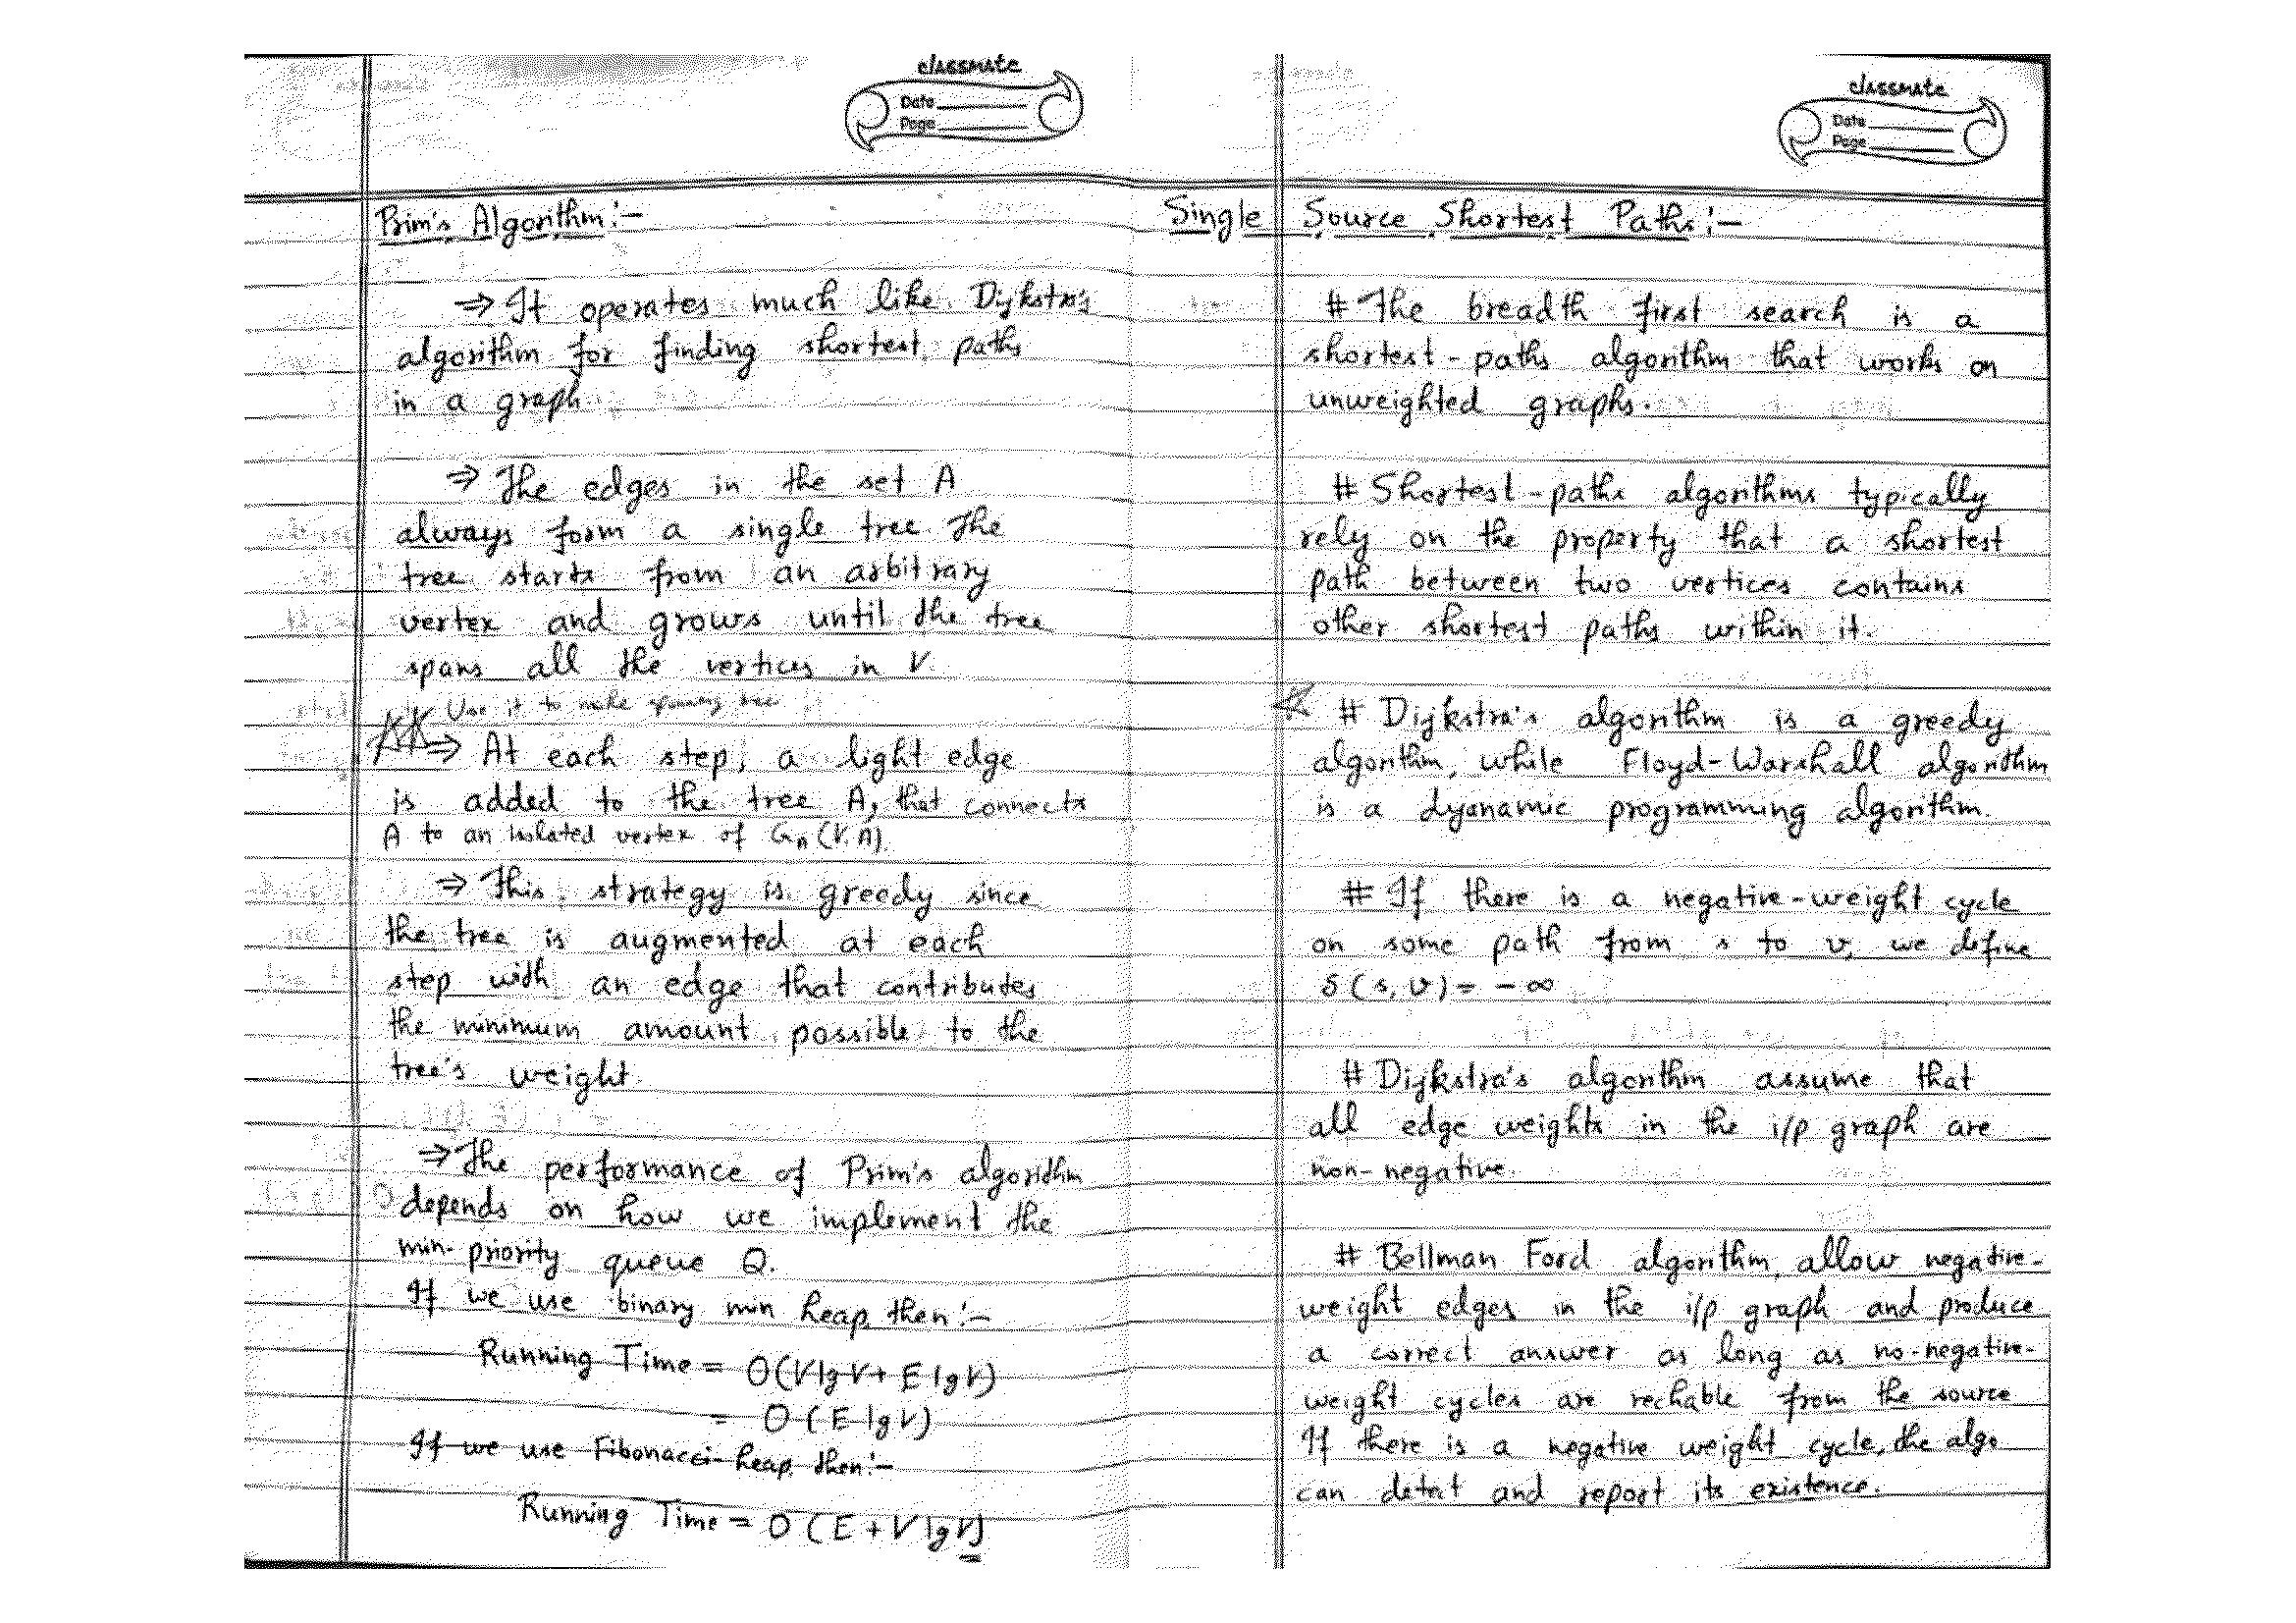 classmate
Date
Page
Prim's Algorithm:-
⇒ It operates much like Dijkstra's
algorithm for finding shortest paths
in a graph
⇒ The edges in the set A
always form a single tree The
tree starts from an arbitrary
vertex and grows until the tree
spans all the vertices in V.
Use it to make spanning tree
⇒ At each step, a light edge
is added to the tree A, that connects
A to an isolated vertex of G_A (V, A).
⇒ This strategy is greedy since
the tree is augmented at each
step with an edge that contributes
the minimum amount possible to the
tree's weight
⇒ The performance of Prim's algorithm
depends on how we implement the
min-priority queue Q.
If we use binary min heap then:-
Running Time = O(V lg V + E lg V)
= O (E lg V)
If we use Fibonacci heap then:-
Running Time = O (E + V lg V)
classmate
Date
Page
Single Source Shortest Paths:-
# The breadth first search is a
shortest-paths algorithm that works on
unweighted graphs.
# Shortest-paths algorithms typically
rely on the property that a shortest
path between two vertices contains
other shortest paths within it.
# Dijkstra's algorithm is a greedy
algorithm, while Floyd-Warshall algorithm
is a dyanamic programming algorithm.
# If there is a negative-weight cycle
on some path from s to v, we define
δ(s, v) = -∞
# Dijkstra's algorithm assume that
all edge weights in the i/p graph are
non-negative.
# Bellman Ford algorithm, allow negative-
weight edges in the i/p graph and produce
a correct answer as long as no-negative-
weight cycles are rechable from the source
If there is a negative weight cycle, the algo
can detect and report its existence.